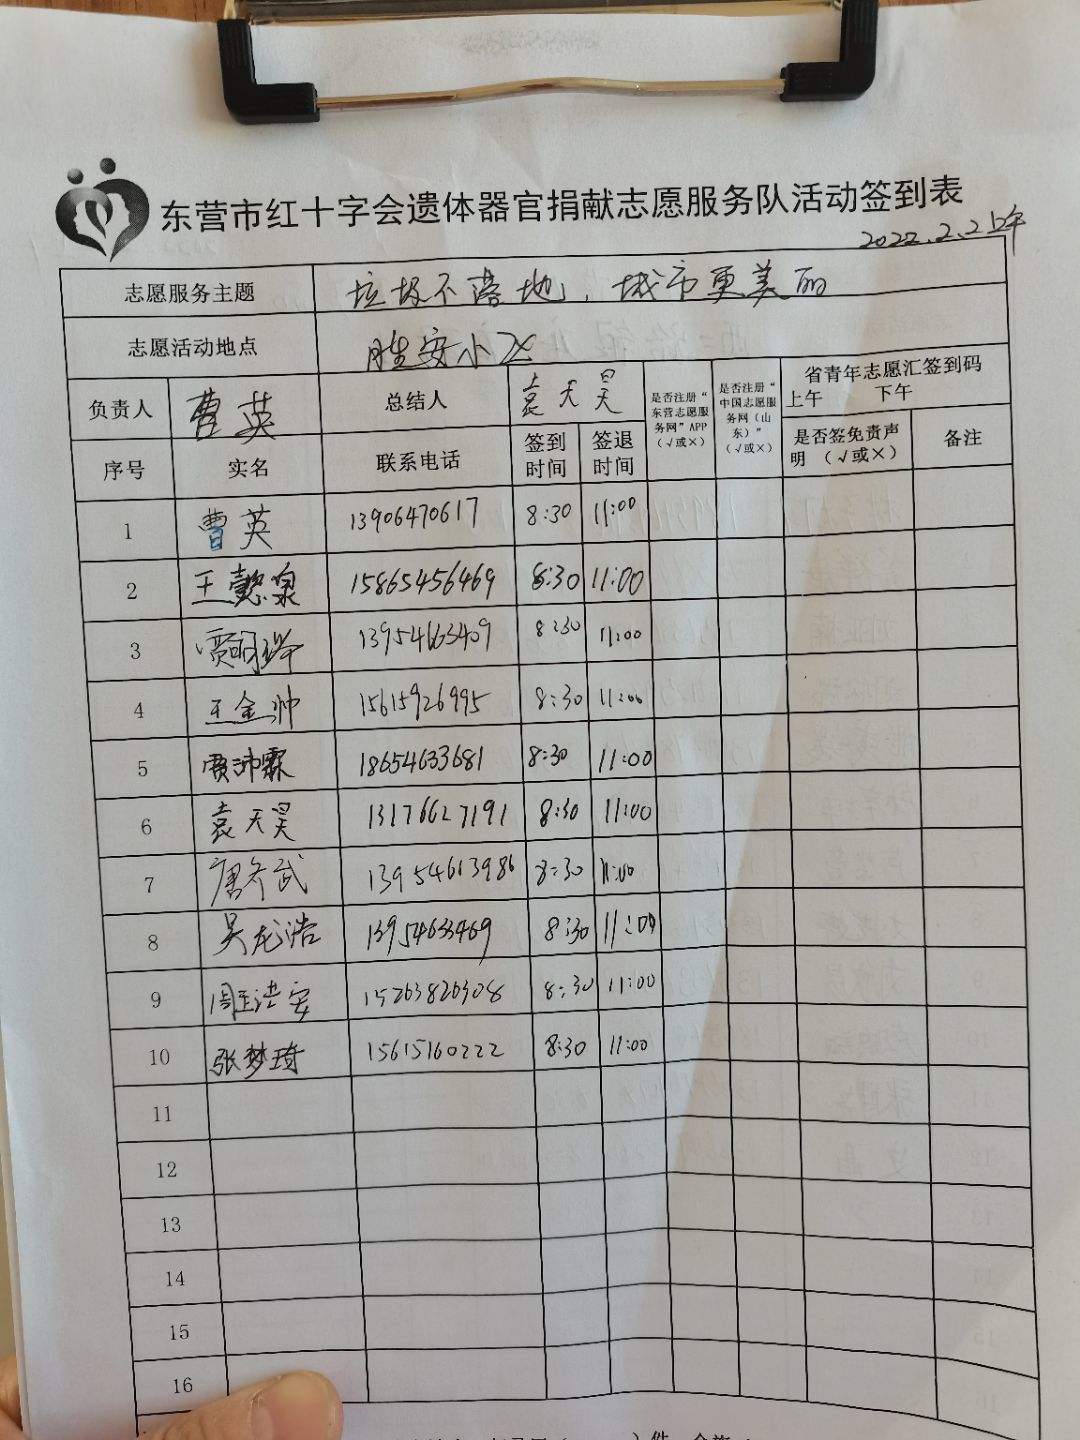 东营市红十字会遗体器官捐献志愿服务队活动签到表
2022.2.2上午
志愿服务主题 垃圾不落地，城市更美丽
志愿活动地点 胜安小区
负责人 曹英 总结人 袁天昊 是否注册“东营志愿服务网”APP（√或×） 是否注册“中国志愿服务网（山东）”（√或×） 省青年志愿汇签到码 上午 下午
序号 实名 联系电话 签到时间 签退时间 是否签免责声明（√或×） 备注
1 曹英 13906470617 8:30 11:00
2 王懿泉 15865456469 8:30 11:00
3 贾明 13954663409 8:30 11:00
4 王金帅 15615926995 8:30 11:00
5 贾沛霖 18654633681 8:30 11:00
6 袁天昊 13176627191 8:30 11:00
7 唐齐武 13954613986 8:30 11:00
8 吴龙浩 13954633469 8:30 11:00
9 安 15263826308 8:30 11:00
10 张梦琦 15615160222 8:30 11:00
11
12
13
14
15
16